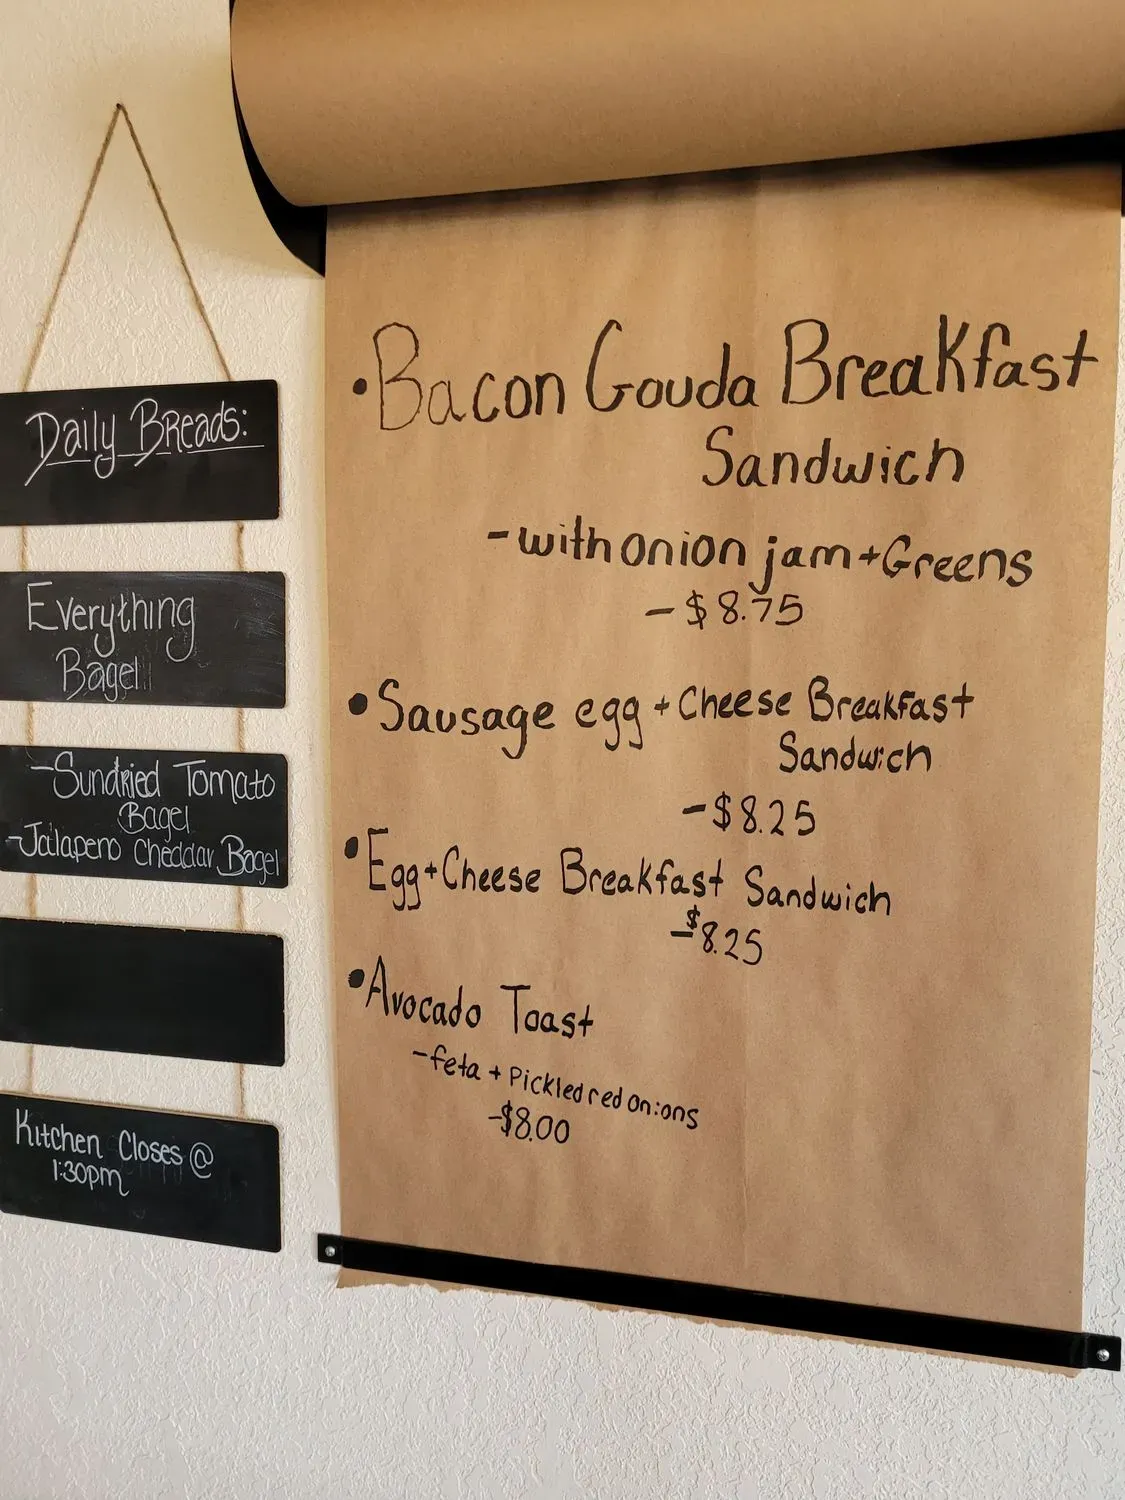 Daily Breads:
Everything
Bagel
-Sundried Tomato
Bagel
-Jalapeno Cheddar Bagel
Kitchen Closes @
1:30pm
•Bacon Gouda Breakfast
Sandwich
-with onion jam + Greens
-$8.75
•Sausage egg + Cheese Breakfast
Sandwich
-$8.25
•Egg + Cheese Breakfast Sandwich
-$8.25
•Avocado Toast
-feta + Pickled red onions
-$8.00